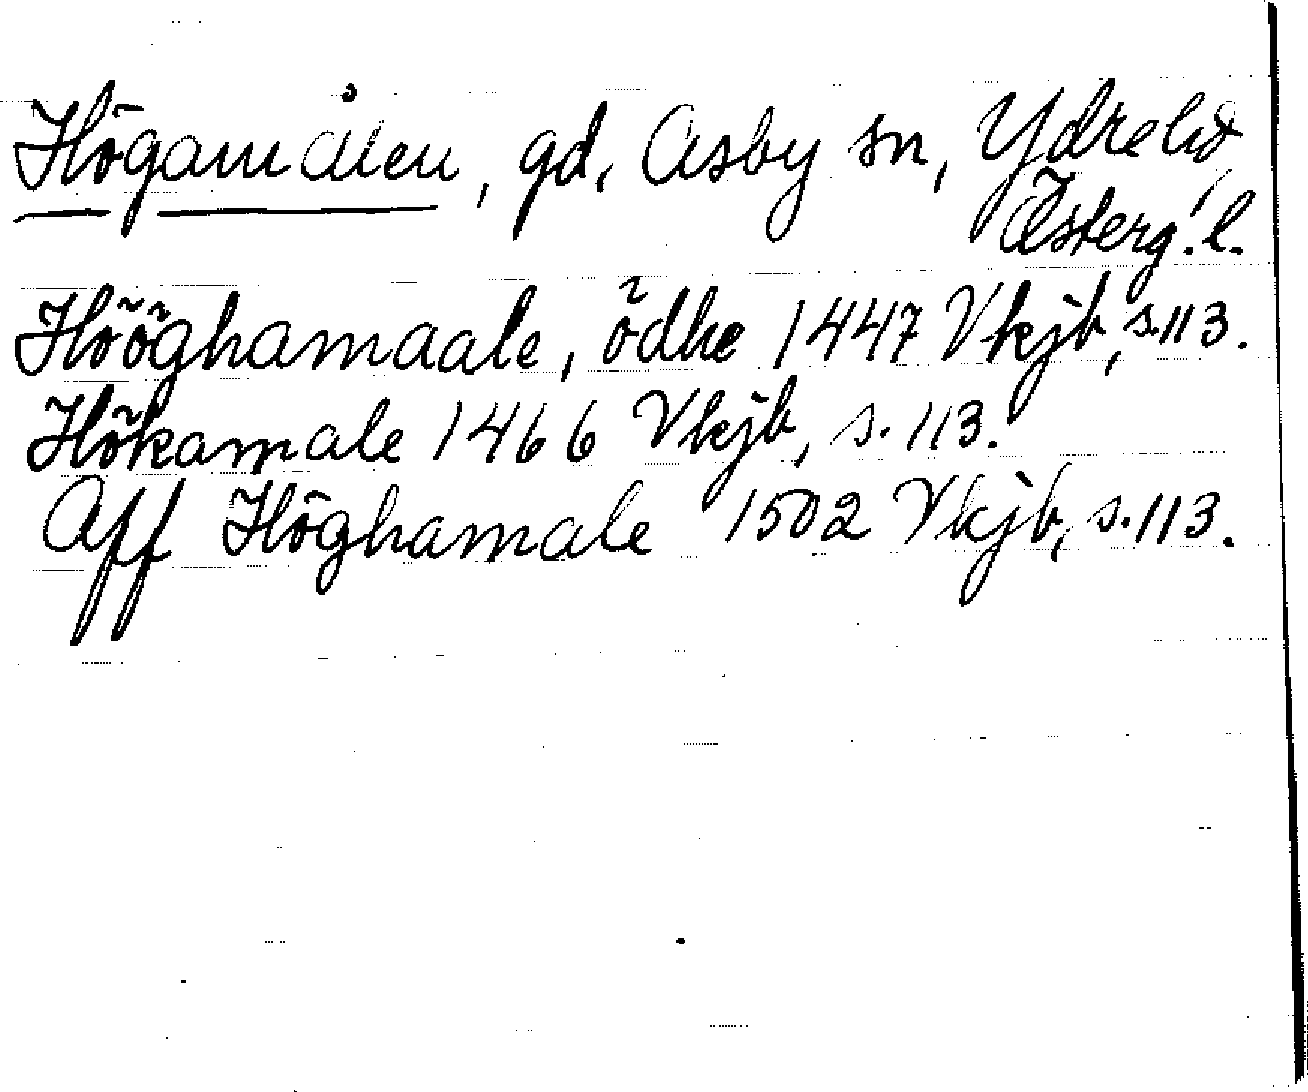 Högamålen, gd, Asby sn, Ydre hd,
Österg. l.
Hööghamaale, ödhe 1447 Vkjb, s. 113.
Hökamale 1466 Vkjb, s. 113.
Aff Höghamale 1502 Vkjb, s. 113.